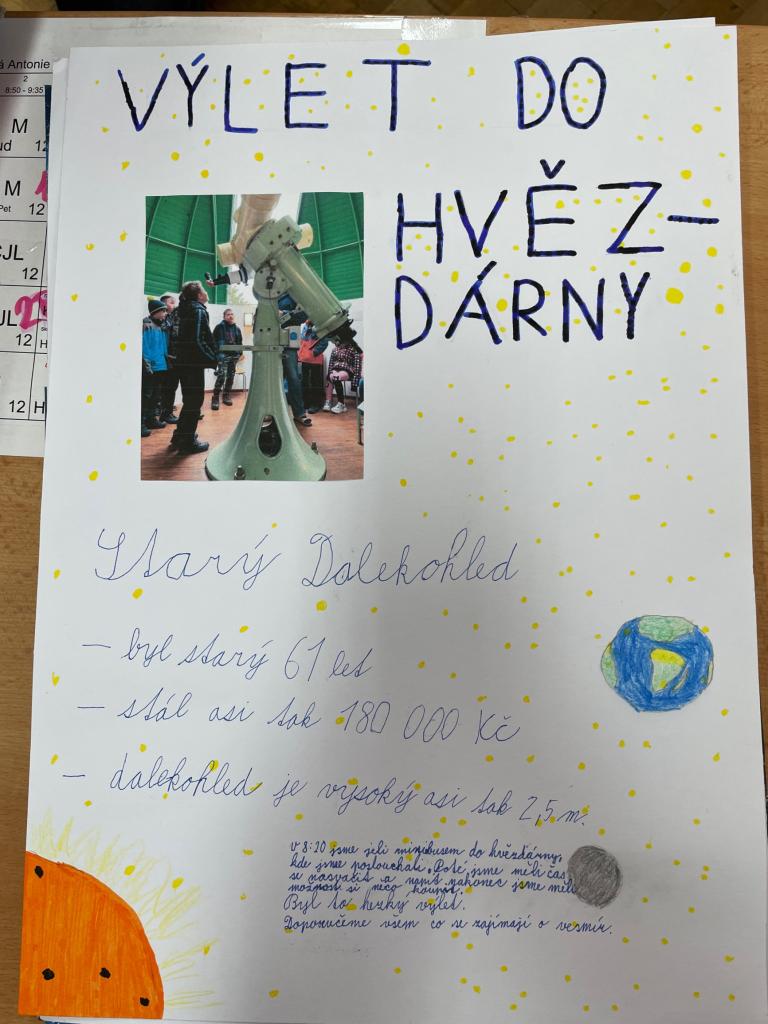 á Antonie
2
8:50 - 9:35
M
ud 12
M
Pet 12
12
12
12 H
VÝLET DO
HVĚZ-
DÁRNY
Starý Dalekohled
- byl starý 61 let
- stál asi tak 180 000 Kč
- dalekohled je vysoký asi tak 2,5 m.
V 8:20 jsme jeli minibusem do hvězdárny,
kde jsme poslouchali. Poté jsme měli čas
se nasvačit a napít nakonec jsme měli
možnost si něco koupit.
Byl to hezký výlet.
Doporučeme všem co se zajímají o vesmír.